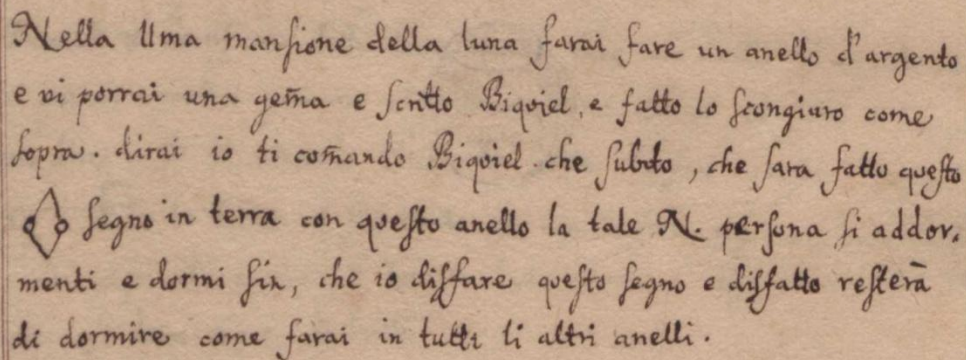 Nella IIma mansione della luna farai fare un anello d'argento
e vi porrai una gem̃a e scritto Biqviel, e fatto lo scongiuro come
sopra. dirai io ti com̃ando Biqviel che subito, che sara fatto questo
segno in terra con questo anello la tale N. persona si addor,
menti e dormi sin, che io disfare questo segno e disfatto resterà
di dormire come farai in tutti li altri anelli.